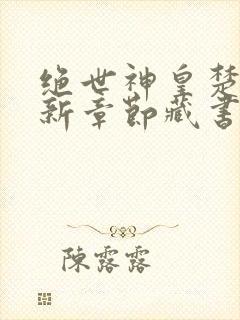 绝世神皇楚
新章節藏書
陳露露